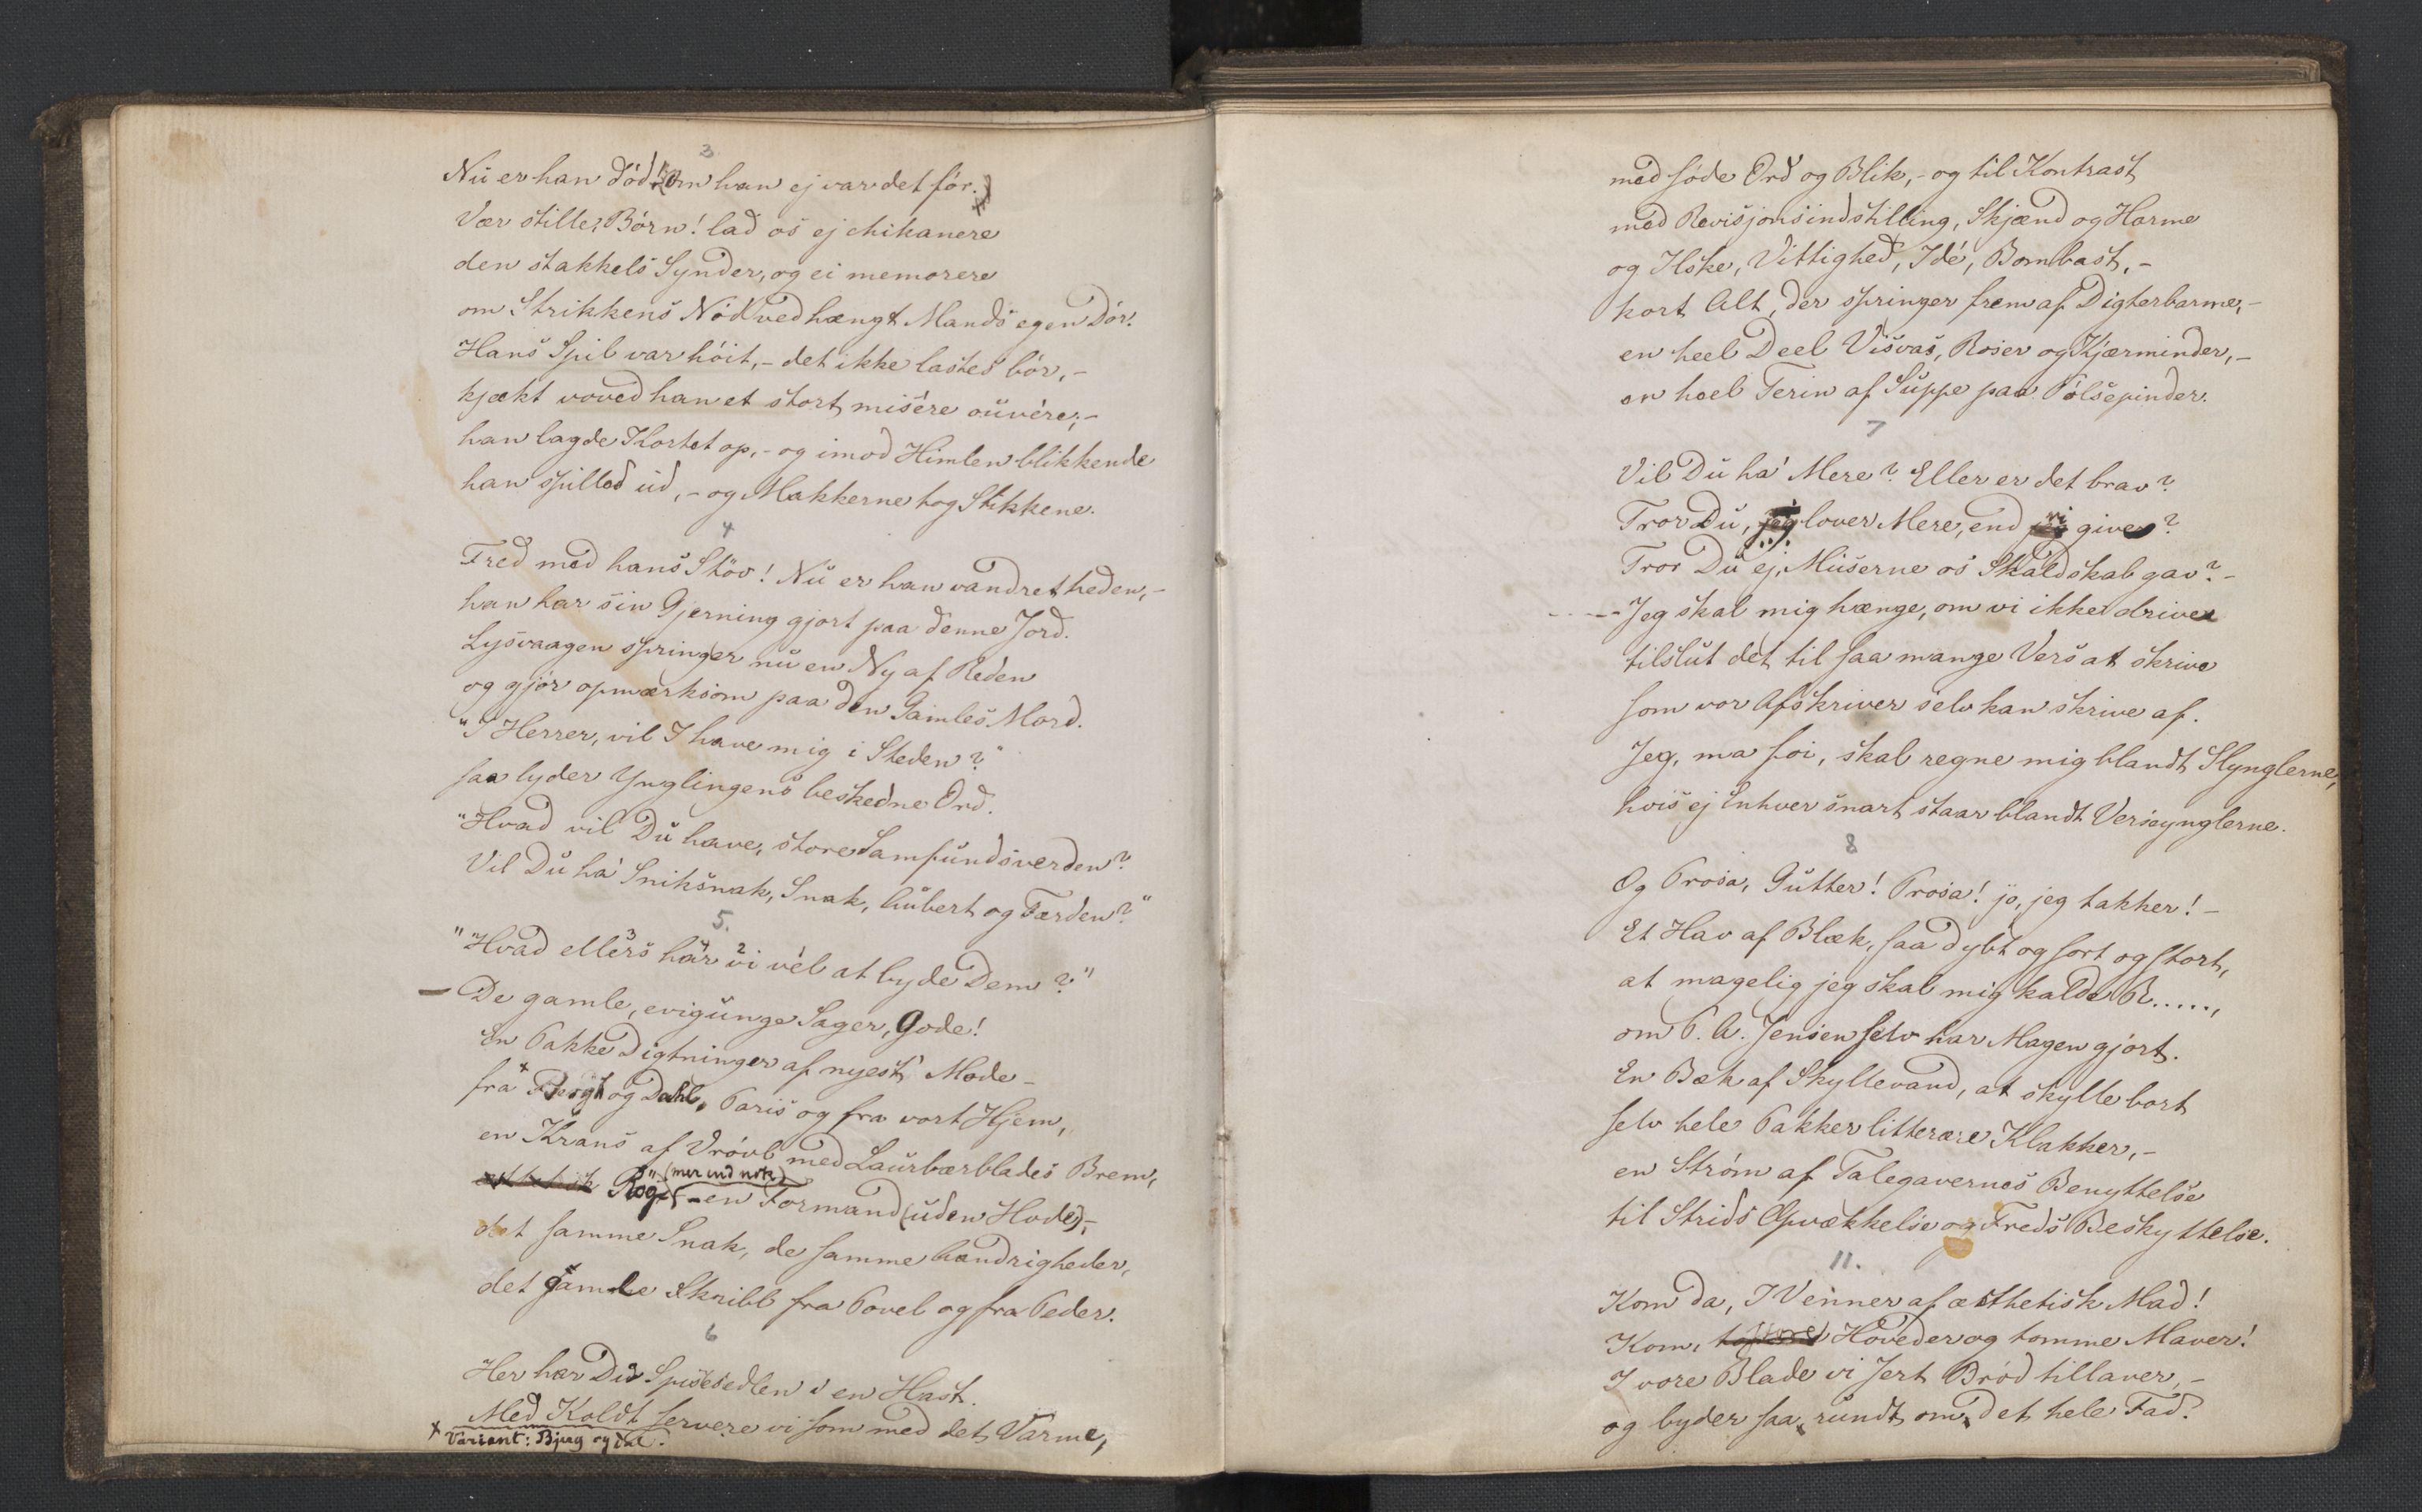 3
Nu er han død! (Om han ej var det før.)
Vær stille, Børn! lad os ej chikanere
den stakkels Synder, og ei memorere
om Strikkens Nød ved hængt Mands egen Dør.
Hans Spil var høit, - det ikke lastes bør, -
kjækt voved han et stort misére ouvére; -
han lagde Kortet op, - og imod Himlen blikkende
han spilled ud, - og Makkerne tog Stikkene.
4
Fred med hans Støv! Nu er han vandret heden, -
han har sin Gjerning gjort paa denne Jord.
Lysvaagen springer nu en Ny af Reden
og gjør opmærksom paa den Gamles Mord.
"I Herrer, vil I have mig i Steden?"
saa lyder Ynglingens beskedne Ord.
"Hvad vil Du have, store Samfundsverden?
Vil Du ha' Sniksnak, Snak, Aubert og Færden?"
5.
"Hvad ellers har vi vel at byde Dem?"
3 4 2
- De gamle, evigunge Sager, Gode!
En Pakke Digtninger af nyest' Mode -
fra x og Dahl, Paris og fra vort Hjem,
en Krans af Vrøvl med Laurbærblades Brem,
Røg (mer end nok) - en Formand (uden Hode), -
det samme Snak, de samme Aandrigheder,
det gamle Skribl fra Povel og fra Peder.
6
Her har Du Spisesedlen i en Hast.
Med Koldt servere vi som med det Varme,
x Variant: Bjug og Dal.
med søde Ord og Blik, - og til Kontrast
med Revisjonsindstilling, Skjænd og Harme
og Ilske, Vittighed, Idé, Bombast, -
kort Alt, der springer frem af Digterbarme, -
en heel Deel Visvas, Roser og Kjærminder, -
en heel Terin af Suppe paa Pølsepinder.
7
Vil Du ha' Mere? Eller er det brav?
Tror Du, jeg lover Mere, end vi give?
Tror Du ej, Muserne os Skaldskab gav? -
- - - Jeg skal mig hænge, om vi ikke drive
tilslut det til saa mange Vers at skrive
som vor Afskriver selv kan skrive af.
Jeg, ma foi, skal regne mig blandt Slynglerne,
hvis ej Enhver snart staar blandt Verseynglerne.
8
Og Prosa, Gutter! Prosa! jo, jeg takker! -
Et Hav af Blæk, saa dybt og sort og stort,
at magelig jeg skal mig kalde R.....,
om P. A. Jensen selv har Magen gjort.
En Bæk af Skyllevand, at skylle bort
selv hele Pakker litterære Klakker, -
en Strøm af Talegavernes Benyttelse
til Strids Opvækkelse og Freds Beskyttelse.
11.
Kom da, I Venner af æsthetisk Mad!
Kom, Hoveder og tomme Maver!
I vore Blade vi Jert Brød tillaver, -
og byder saa rundt om det hele Fad.